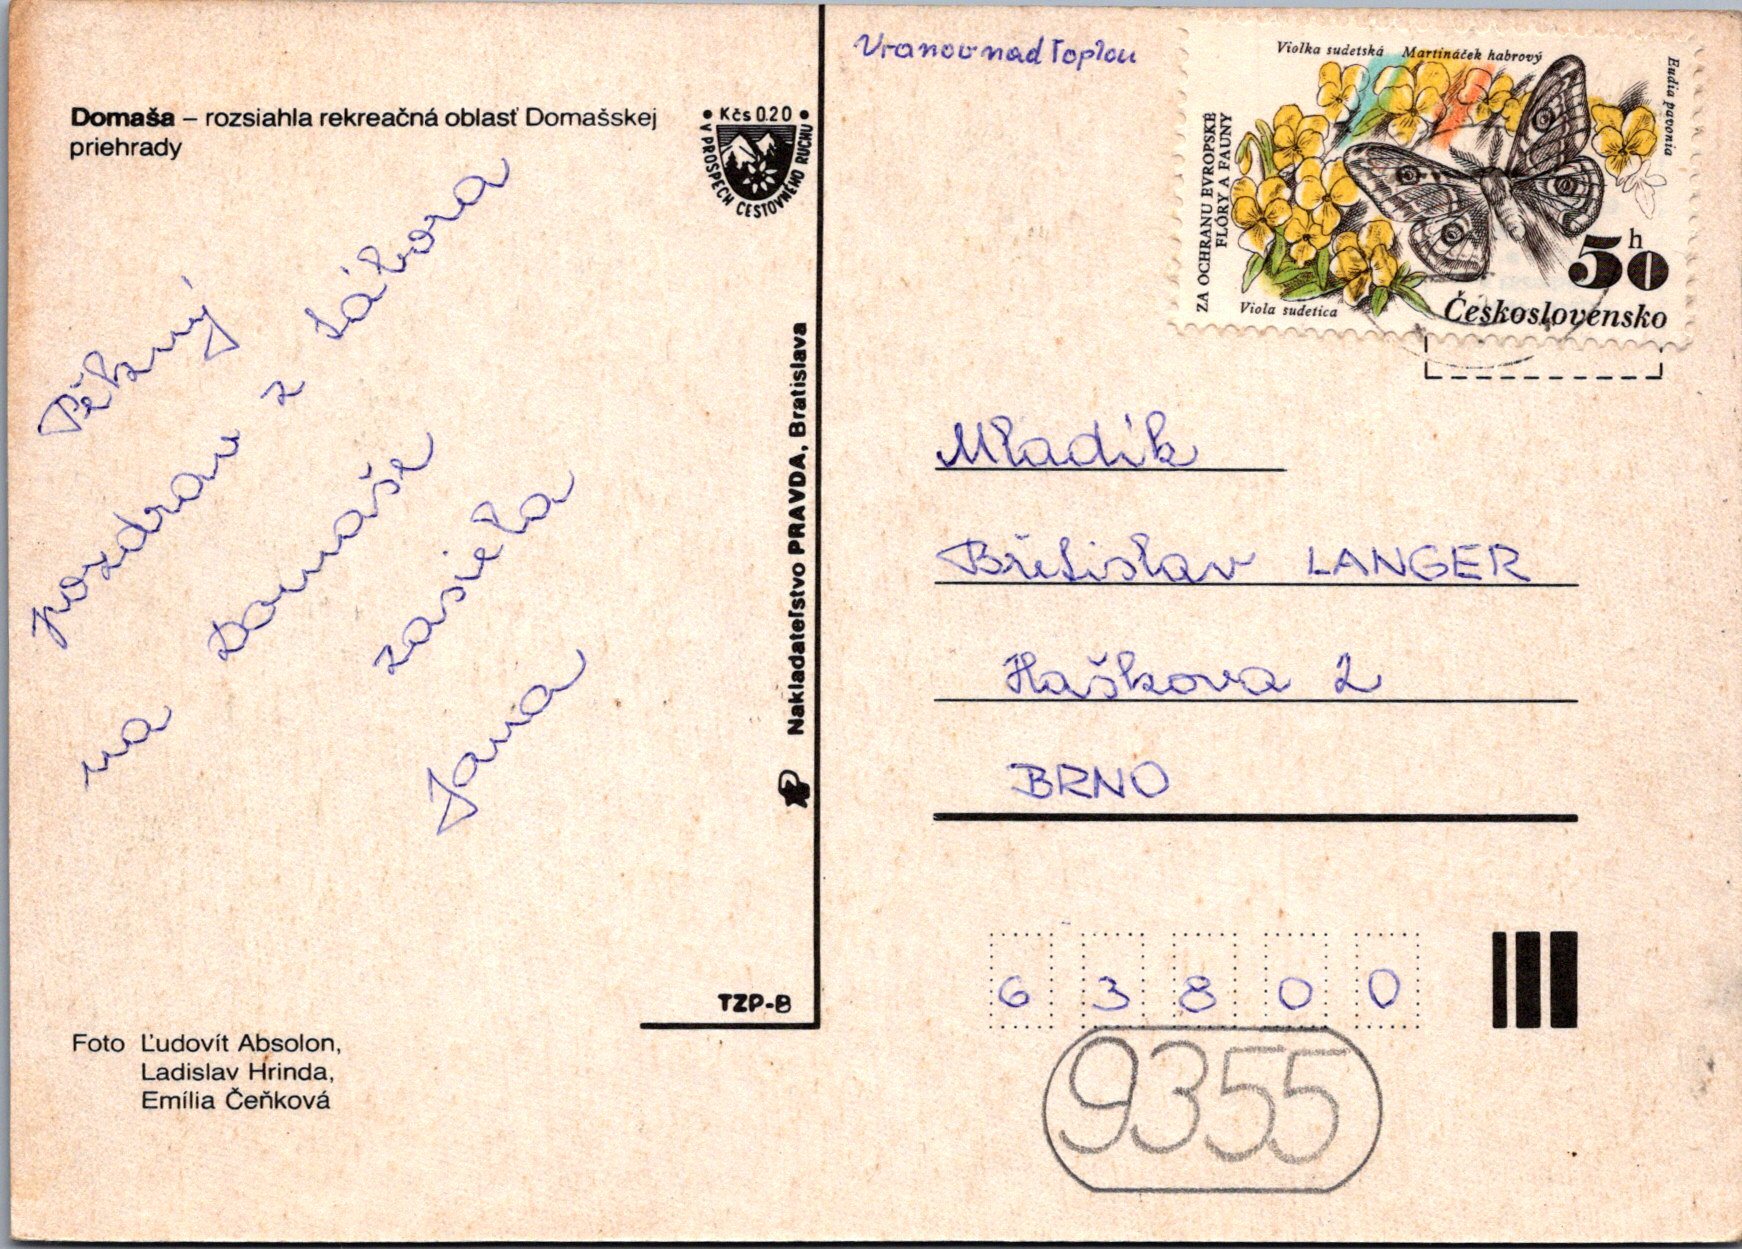 Domaša – rozsiahla rekreačná oblasť Domašskej
priehrady
• Kčs 0.20 •
V PROSPECH CESTOVNÉHO RUCHU
Pěkný
pozdrav z tábora
na Domaše
zasiela
Jana
Nakladateľstvo PRAVDA, Bratislava
TZP-B
Foto Ľudovít Absolon,
Ladislav Hrinda,
Emília Čeňková
Vranov nad Topľou
Violka sudetská Martináček habrový
Eudia pavonia
ZA OCHRANU EVROPSKÉ
FLÓRY A FAUNY
Viola sudetica
50 h
Československo
Mladík
Břetislav LANGER
Haškova 2
BRNO
6 3 8 0 0
9355